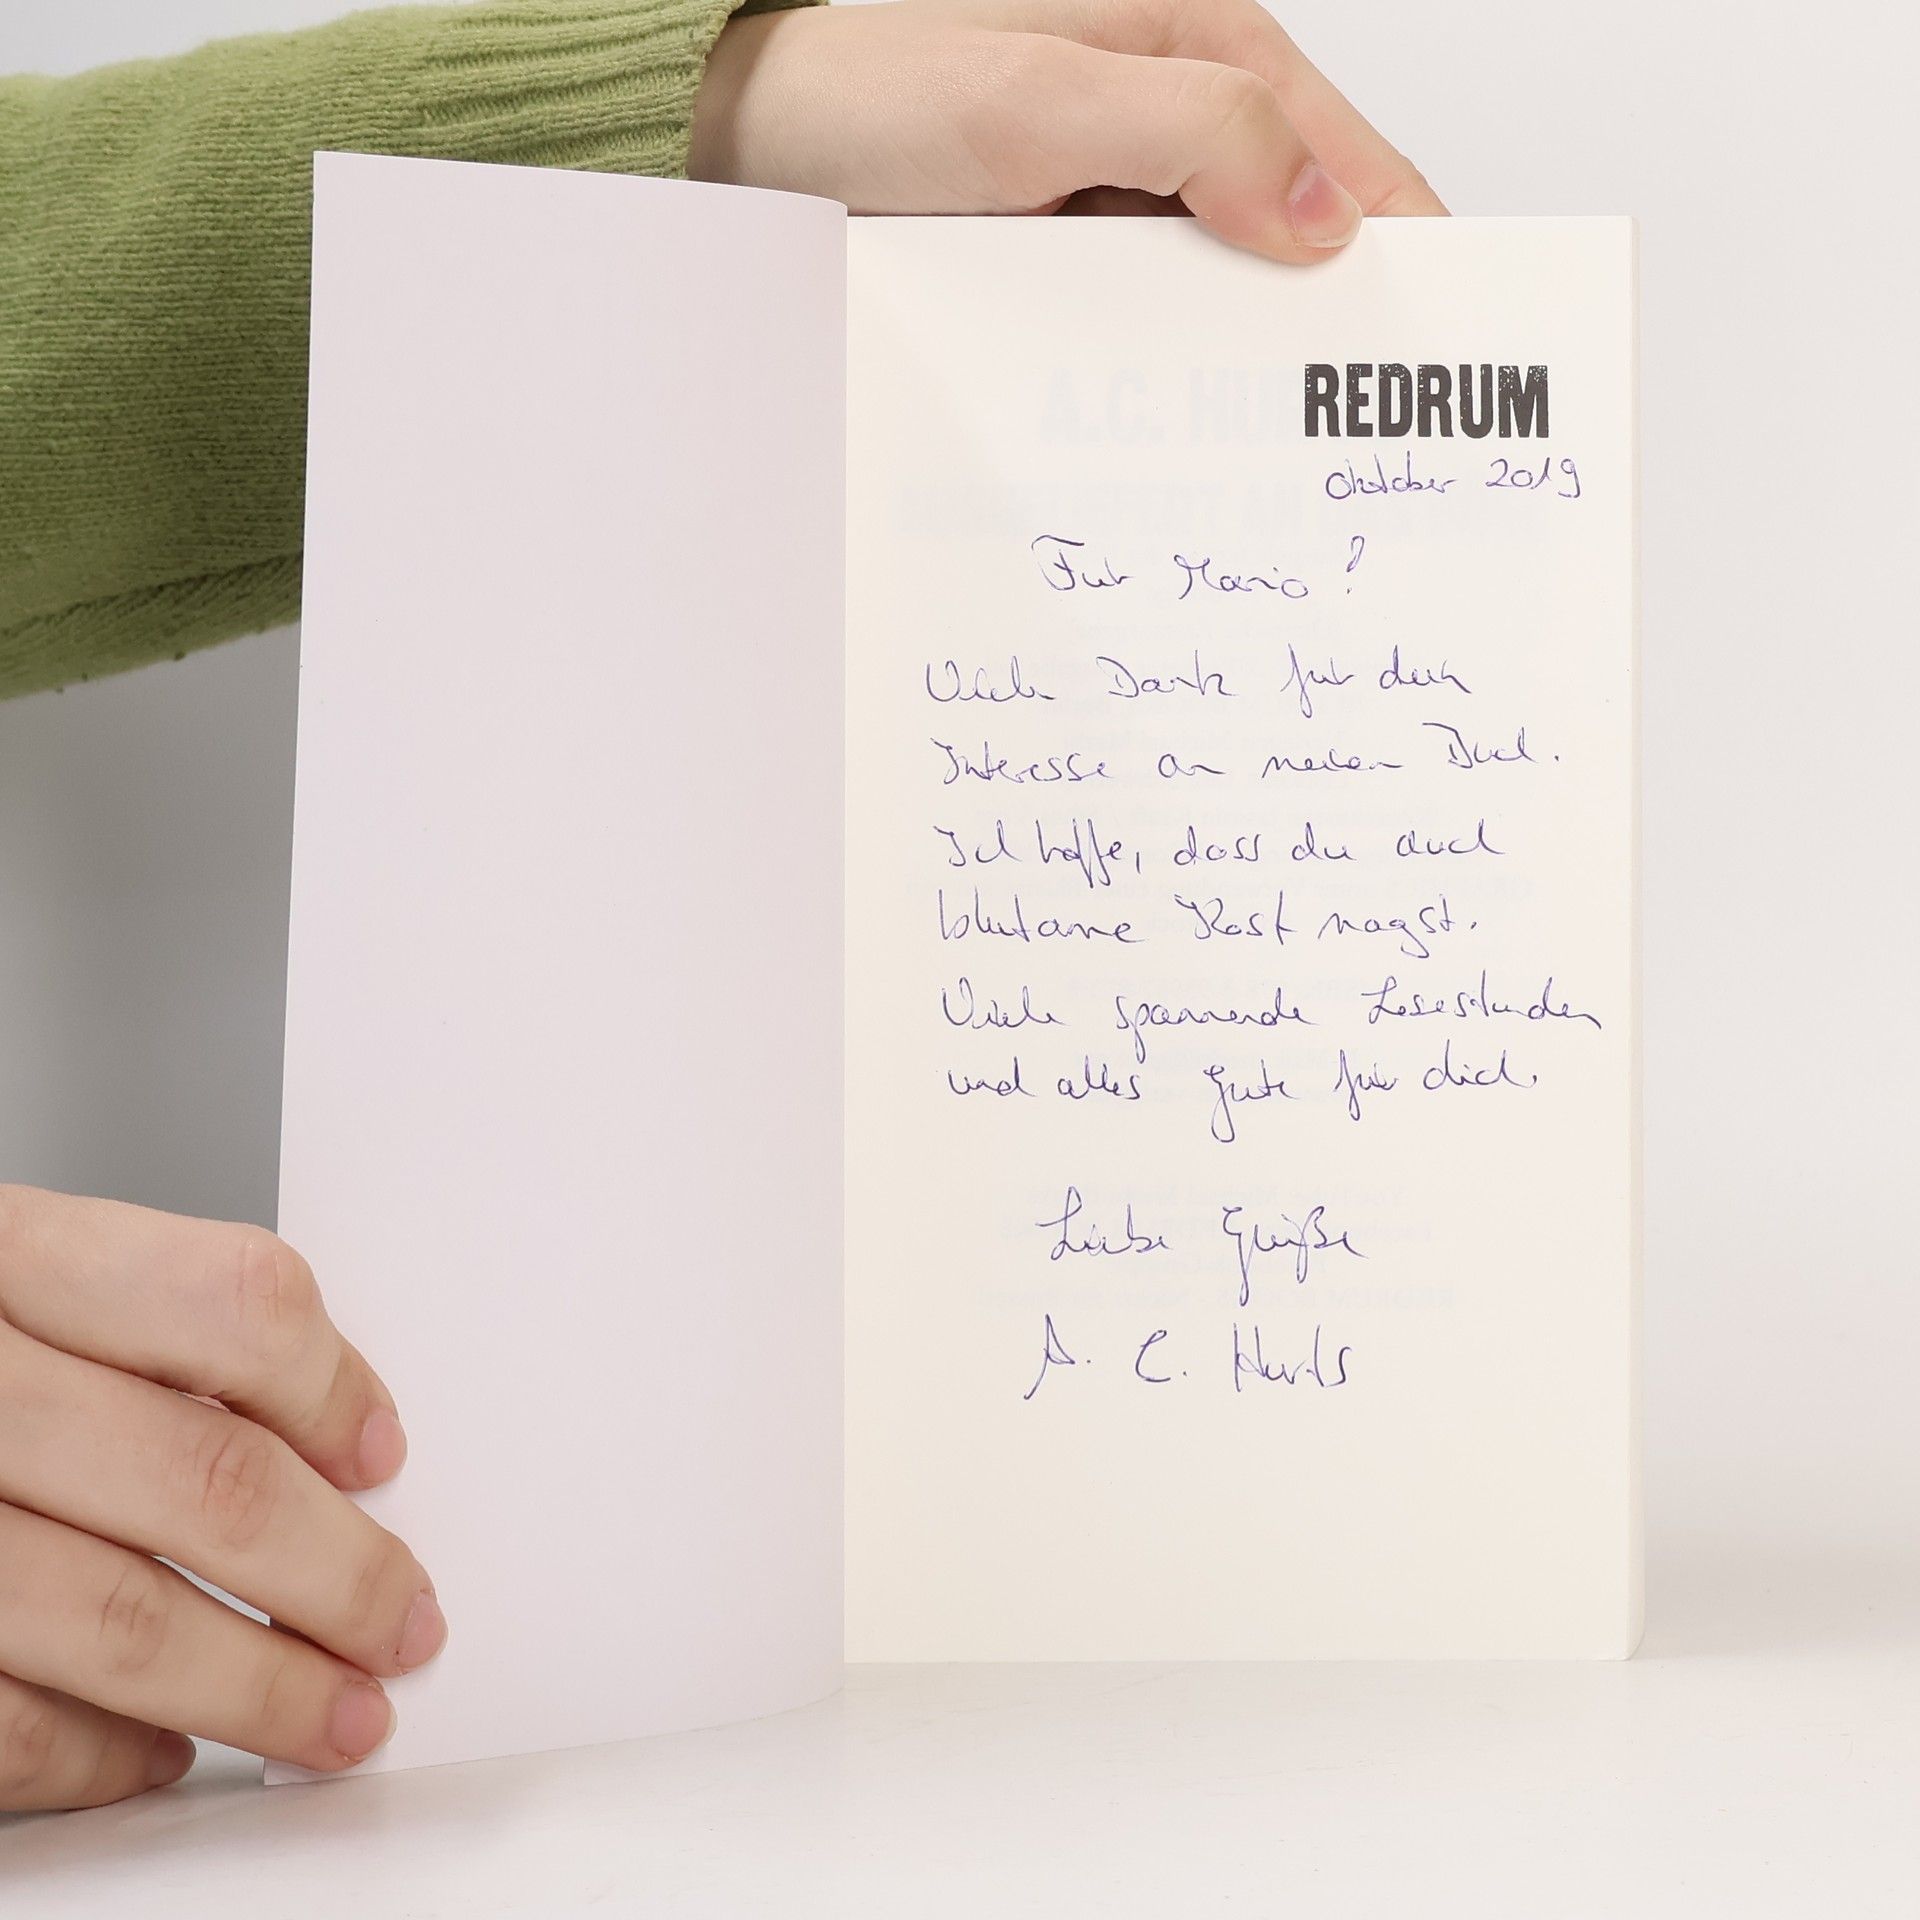 REDRUM
Oktober 2019
Für Mario!
Vielen Dank für dein
Interesse an meinem Buch.
Ich hoffe, dass du auch
blutarme Kost magst.
Viele spannende Lesestunden
und alles Gute für dich.
Liebe Grüße
A. C. Hurts